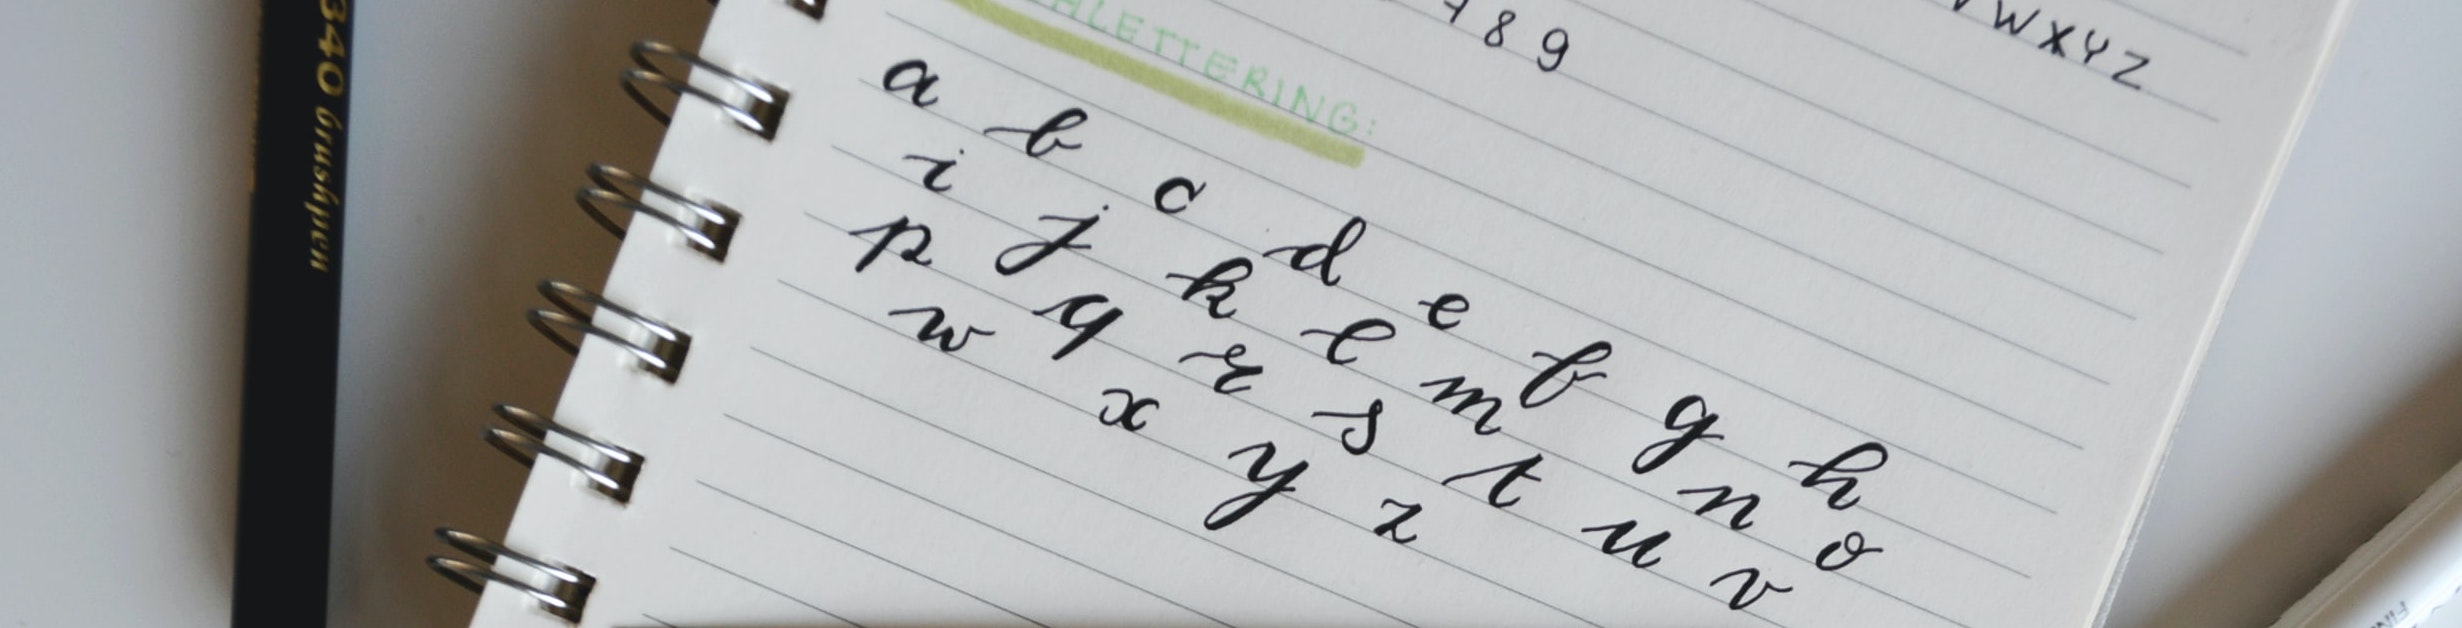 340 brushpen
89
WXYZ
LETTERING:
a b c d e f g h
i j k l m n o
p q r s t u v
w x y z